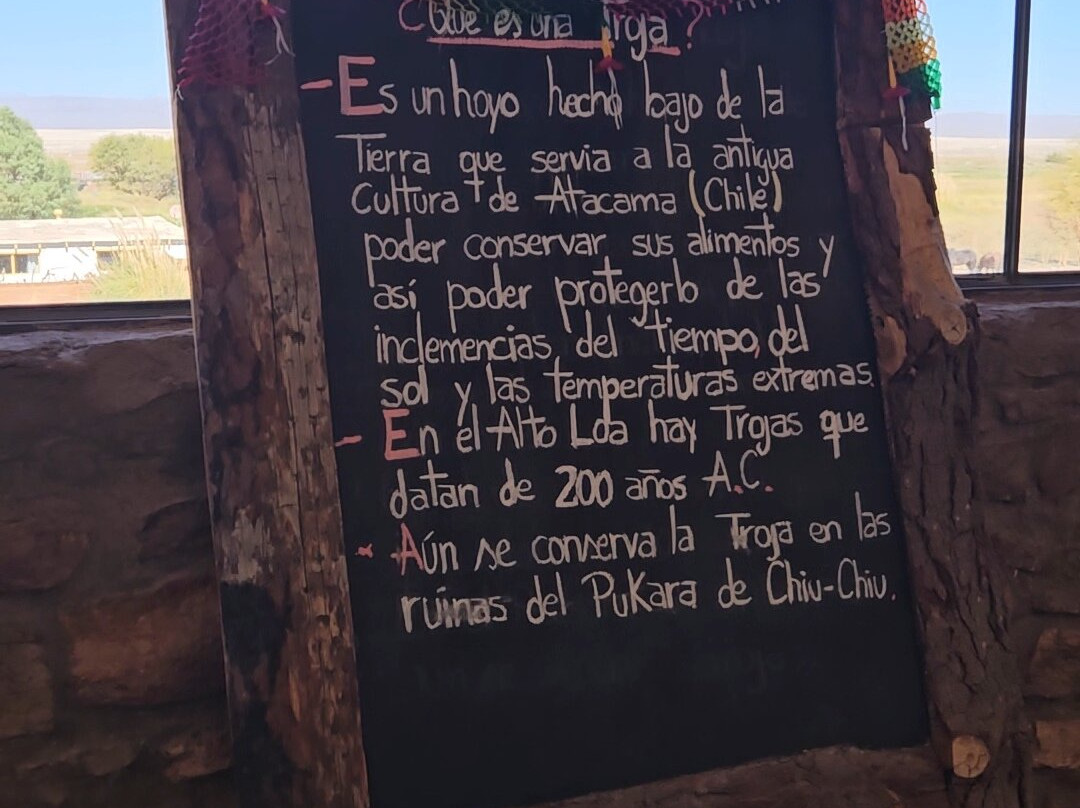 ¿Que es una Troja?
- Es un hoyo hecho bajo de la
Tierra que servia a la antigua
Cultura de Atacama (Chile)
poder conservar sus alimentos y
así poder protegerlo de las
inclemencias del tiempo, del
sol y las temperaturas extremas.
- En el Alto Loa hay Trojas que
datan de 200 años A.C.
- Aún se conserva la Troja en las
ruinas del Pukara de Chiu-Chiu.